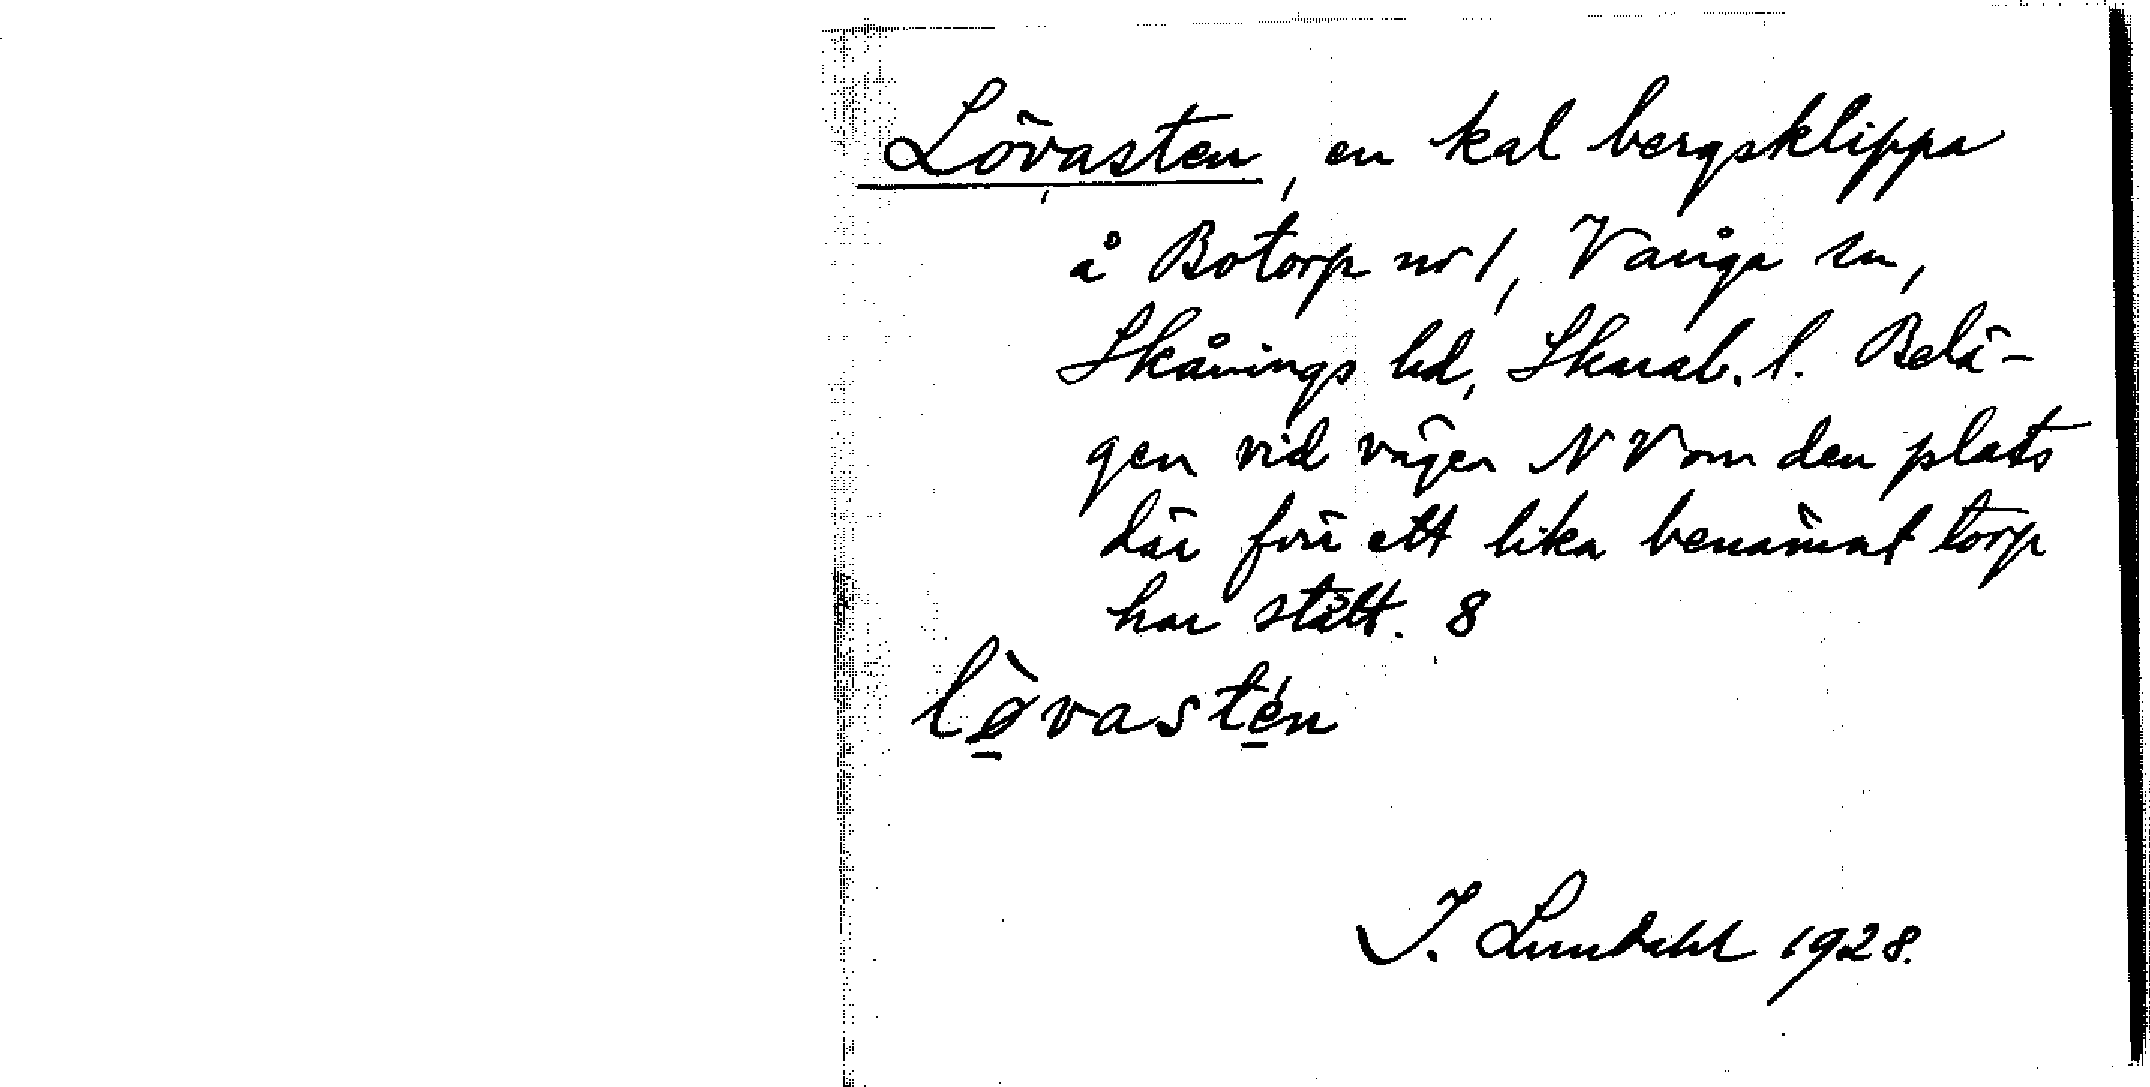 Lövasten, en kal bergsklippa
å Botorp nr 1, Vånga sn,
Skånings hd, Skarab. l. Belä-
gen vid vägen NV om den plats
där förr ett lika benämnt torp
har stått. 8
lø̀vastén
I. Lundahl 1928.